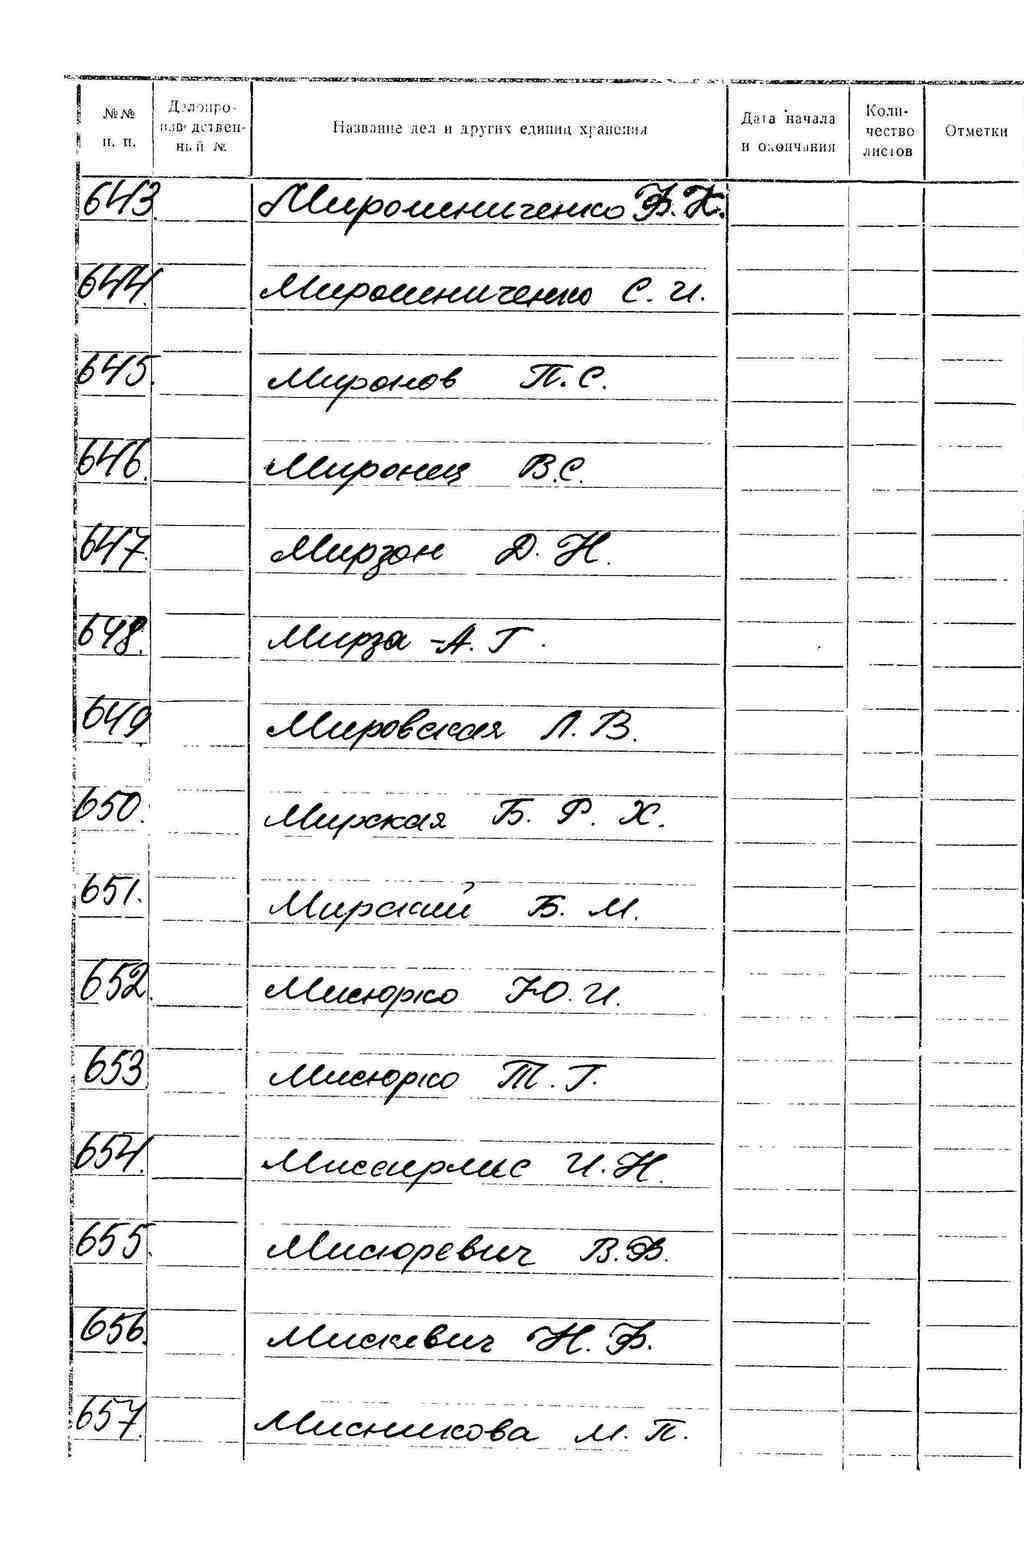 №№ п. п. Делопроизводственный № Название дел и других единиц хранения Дата начала и окончания Количество листов Отметки
643. Мирошниченко Ф. К.
644. Мирошниченко С. И.
645. Миронов П. С.
646. Миронец В. С.
647. Мирзон Д. Н.
648. Мирза -А. Г.
649 Мировская Л. В.
650. Мирская Б. Р. Х.
651. Мирский Б. М.
652. Мисюрко Ю. И.
653. Мисюрко Т. Г.
654. Миссирлис И. Н.
655. Мисюревич В. Ф.
656. Мискевич Н. Ф.
657. Мисникова М. П.